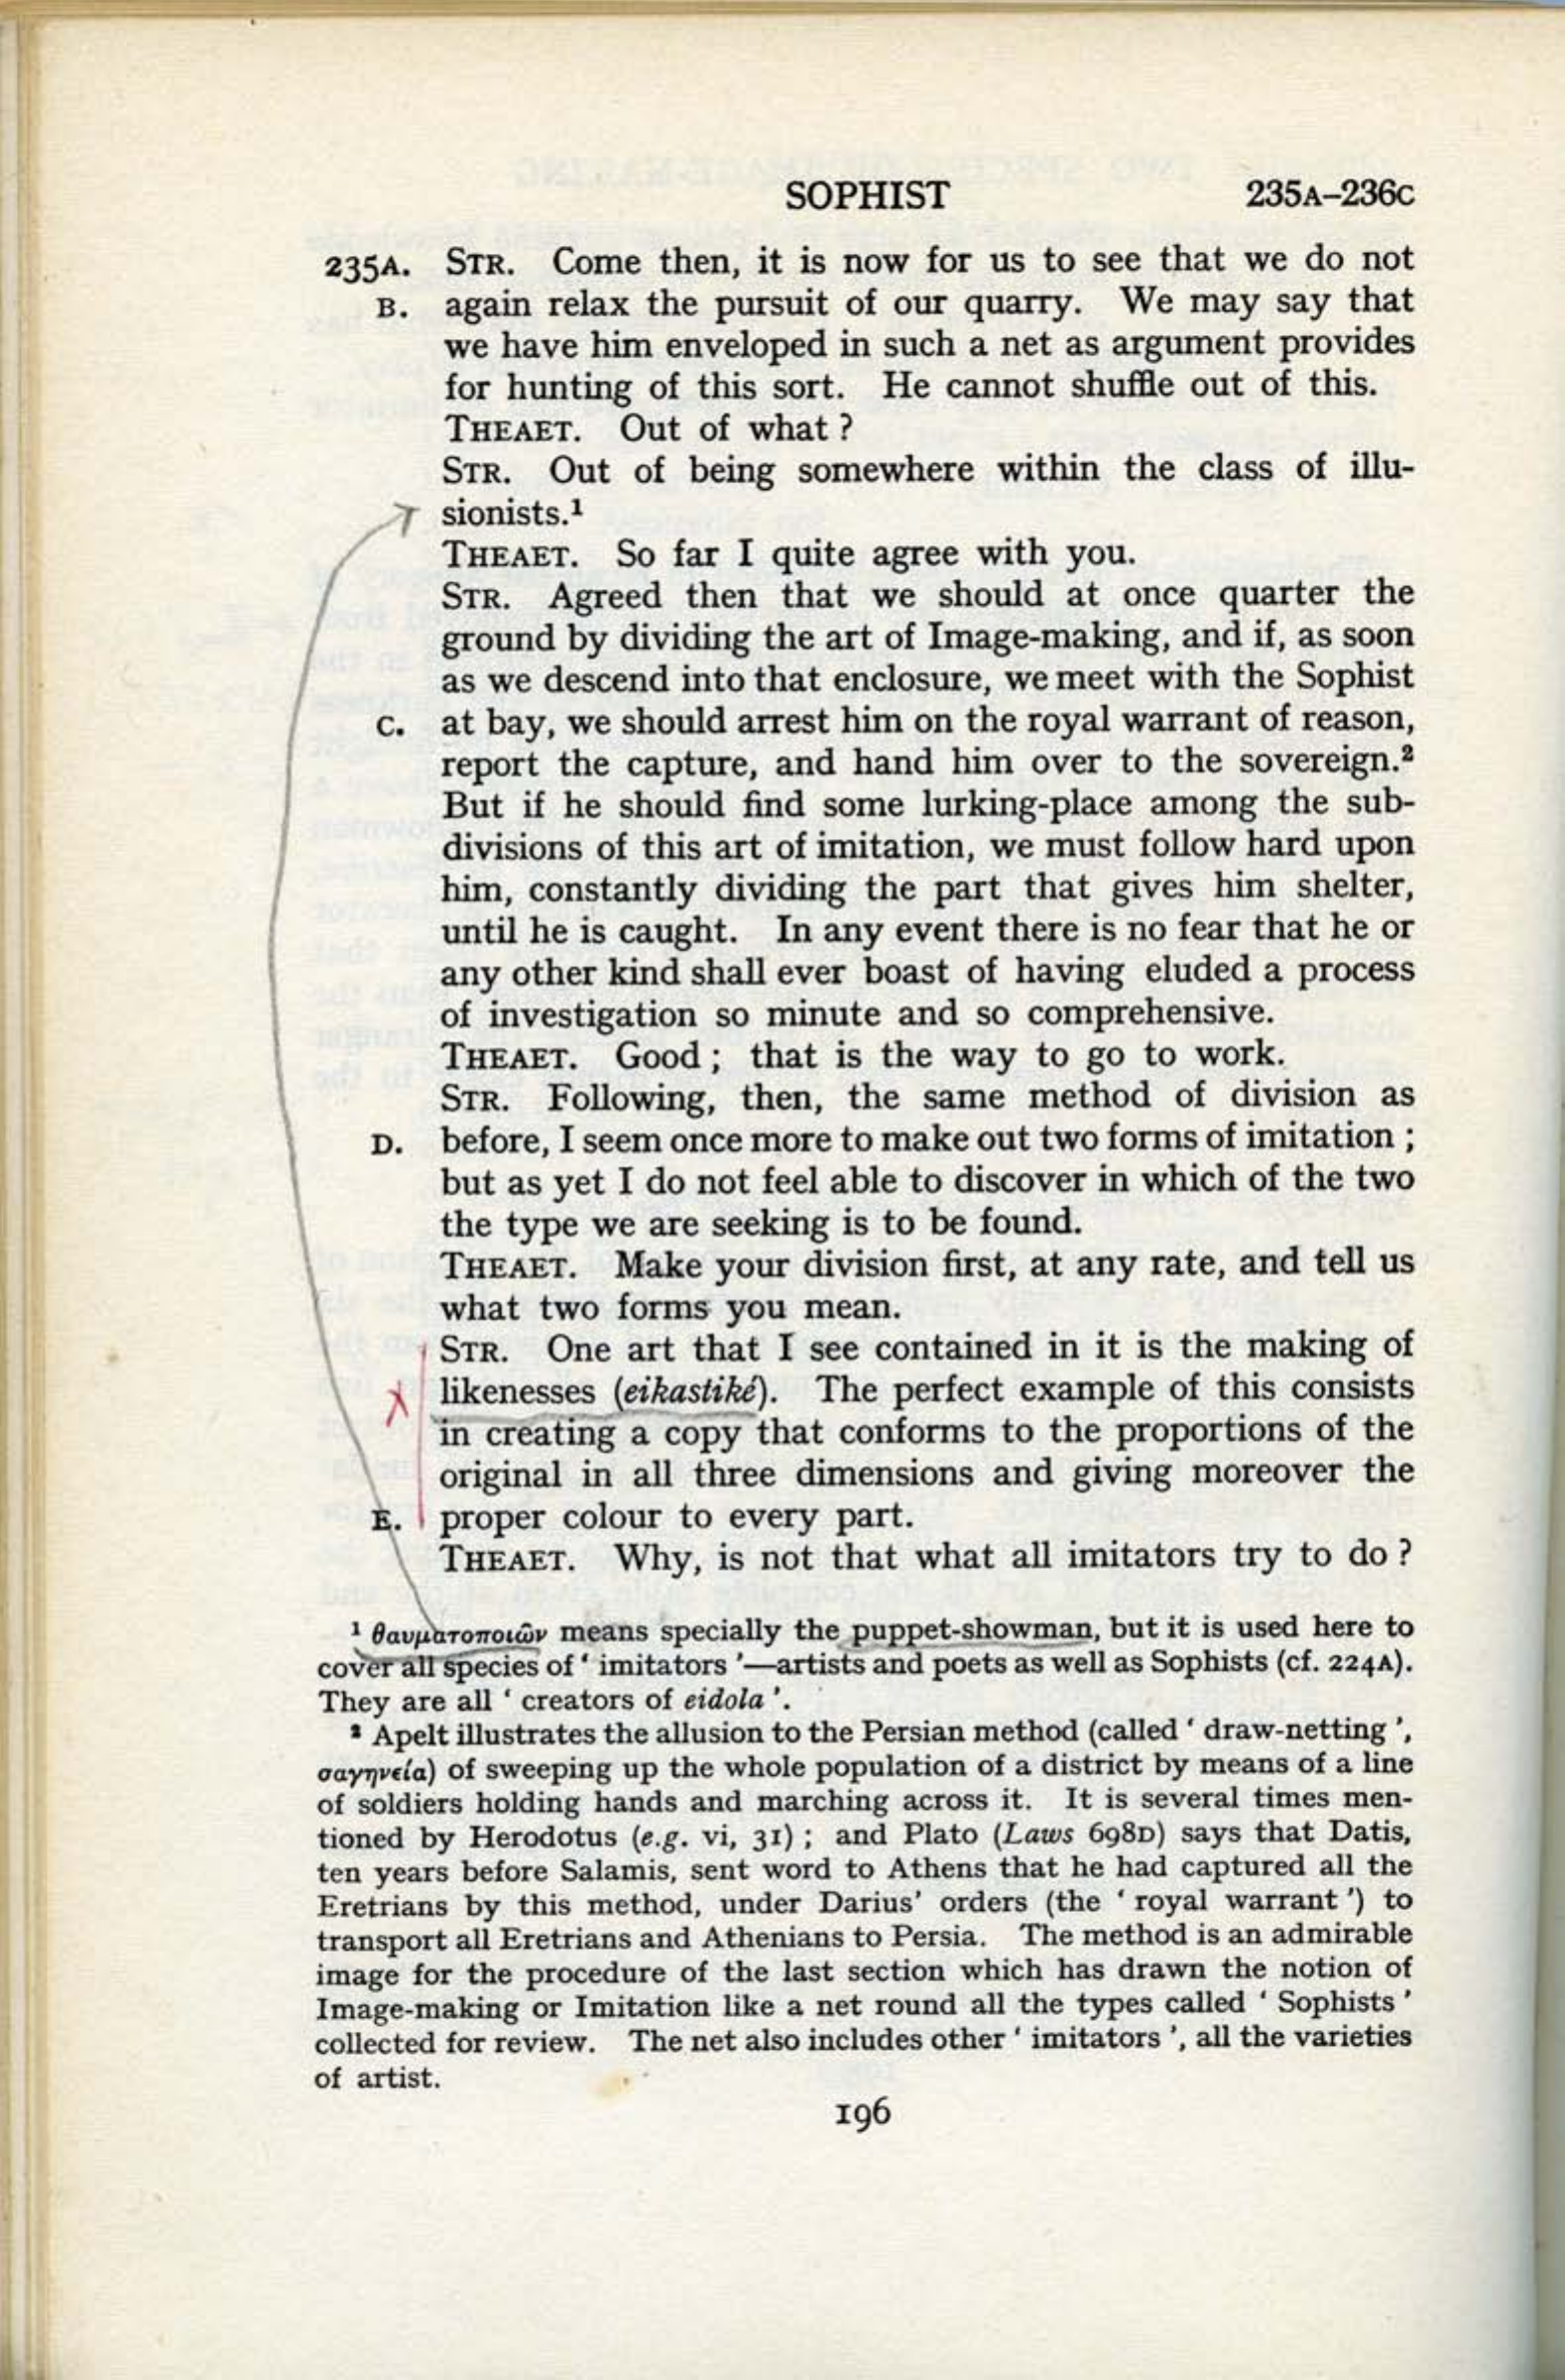 SOPHIST 235A–236C
235A. STR. Come then, it is now for us to see that we do not
B. again relax the pursuit of our quarry. We may say that
we have him enveloped in such a net as argument provides
for hunting of this sort. He cannot shuffle out of this.
THEAET. Out of what ?
STR. Out of being somewhere within the class of illu-
sionists.¹
THEAET. So far I quite agree with you.
STR. Agreed then that we should at once quarter the
ground by dividing the art of Image-making, and if, as soon
as we descend into that enclosure, we meet with the Sophist
C. at bay, we should arrest him on the royal warrant of reason,
report the capture, and hand him over to the sovereign.²
But if he should find some lurking-place among the sub-
divisions of this art of imitation, we must follow hard upon
him, constantly dividing the part that gives him shelter,
until he is caught. In any event there is no fear that he or
any other kind shall ever boast of having eluded a process
of investigation so minute and so comprehensive.
THEAET. Good ; that is the way to go to work.
STR. Following, then, the same method of division as
D. before, I seem once more to make out two forms of imitation ;
but as yet I do not feel able to discover in which of the two
the type we are seeking is to be found.
THEAET. Make your division first, at any rate, and tell us
what two forms you mean.
STR. One art that I see contained in it is the making of
likenesses (eikastiké). The perfect example of this consists
in creating a copy that conforms to the proportions of the
original in all three dimensions and giving moreover the
E. proper colour to every part.
THEAET. Why, is not that what all imitators try to do ?
¹ θαυματοποιῶν means specially the puppet-showman, but it is used here to
cover all species of ' imitators '—artists and poets as well as Sophists (cf. 224A).
They are all ' creators of eidola '.
² Apelt illustrates the allusion to the Persian method (called ' draw-netting ',
σαγηνεία) of sweeping up the whole population of a district by means of a line
of soldiers holding hands and marching across it. It is several times men-
tioned by Herodotus (e.g. vi, 31) ; and Plato (Laws 698D) says that Datis,
ten years before Salamis, sent word to Athens that he had captured all the
Eretrians by this method, under Darius' orders (the ' royal warrant ') to
transport all Eretrians and Athenians to Persia. The method is an admirable
image for the procedure of the last section which has drawn the notion of
Image-making or Imitation like a net round all the types called ' Sophists '
collected for review. The net also includes other ' imitators ', all the varieties
of artist.
196